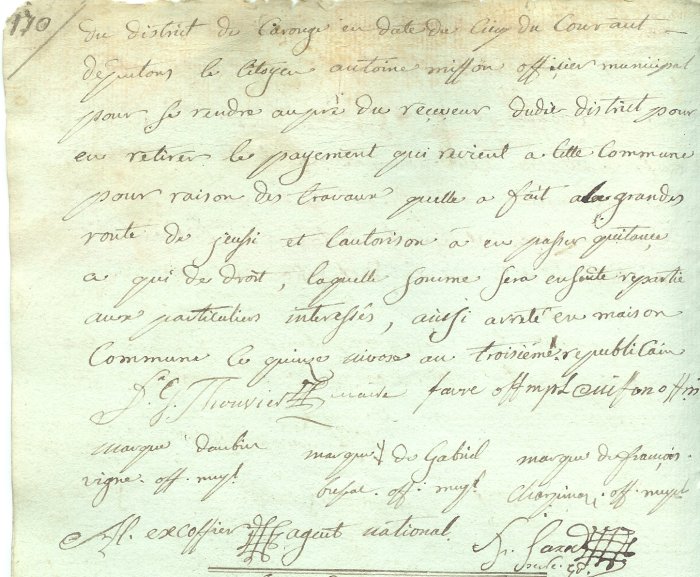 170
du district de Carouge en date du cinq du Courant
députons le Citoyen antoine miffon officier municipal
pour se rendre auprè du reçeveur dudit district pour
en retirer le payement qui revient a cette Commune
pour raison des travaux quelle a fait a la grandes
route de jussi et lautorison à en passer quitançe
a qui de droit, laquelle somme sera ensuite repartie
aux particuliers interessés, aùssi arreté en maison
Commune le quinze nivose an troisiéme republicain
Thouvier maire favre off mpl miffon off m
marque daubin
vigne. off. mupl.
marque de Gabriel
off. mupl.
marque de françois.
off. mupl
excoffier agent national.